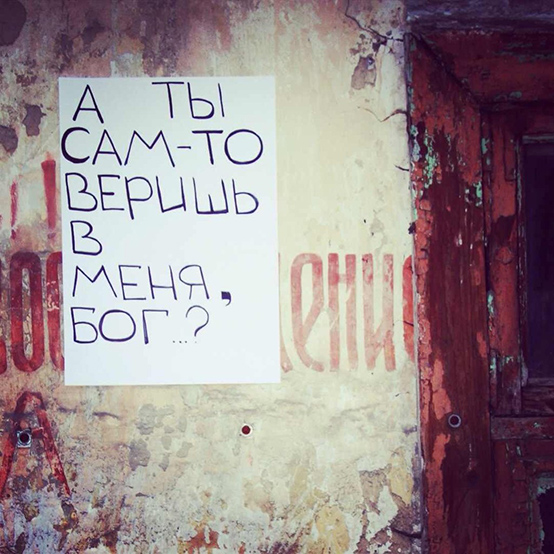 А ТЫ
САМ-ТО
ВЕРИШЬ
В
МЕНЯ,
БОГ...?